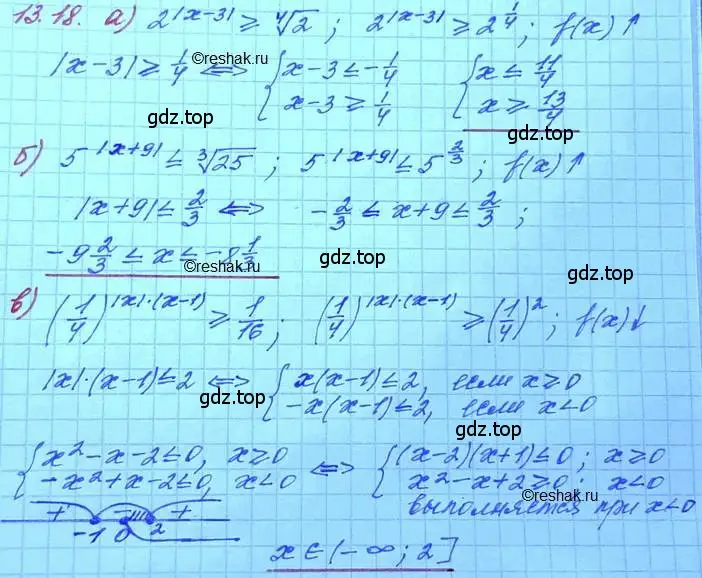 13.18. а) 2^|x-3| ≥ ⁴√2 ; 2^|x-3| ≥ 2^(1/4) ; f(x) ↑
©reshak.ru
|x-3| ≥ 1/4 ⟺ { x-3 ≤ -1/4 { x ≤ 11/4
x-3 ≥ 1/4 x ≥ 13/4
gdz.top gdz.top
б) 5^|x+9| ≤ ³√25 ; 5^|x+9| ≤ 5^(2/3) ; f(x) ↑
|x+9| ≤ 2/3 ⟺ -2/3 ≤ x+9 ≤ 2/3 ;
gdz.top
-9 2/3 ≤ x ≤ -8 1/3
©reshak.ru gdz.top
в) (1/4)^(|x|·(x-1)) ≥ 1/16 ; (1/4)^(|x|·(x-1)) ≥ (1/4)^2 ; f(x)↓
gdz.top
|x|·(x-1) ≤ 2 ⟺ { x(x-1) ≤ 2, если x ≥ 0
-x(x-1) ≤ 2, если x < 0
gdz.top
{ x²-x-2 ≤ 0, x ≥ 0 ⟺ { (x-2)(x+1) ≤ 0 ; x ≥ 0
-x²+x-2 ≤ 0, x < 0 x²-x+2 ≥ 0 ; x < 0
gdz.top ©reshak.ru
выполняется при x < 0
+ - +
-1 0 2
x ∈ (-∞; 2]
gdz.top